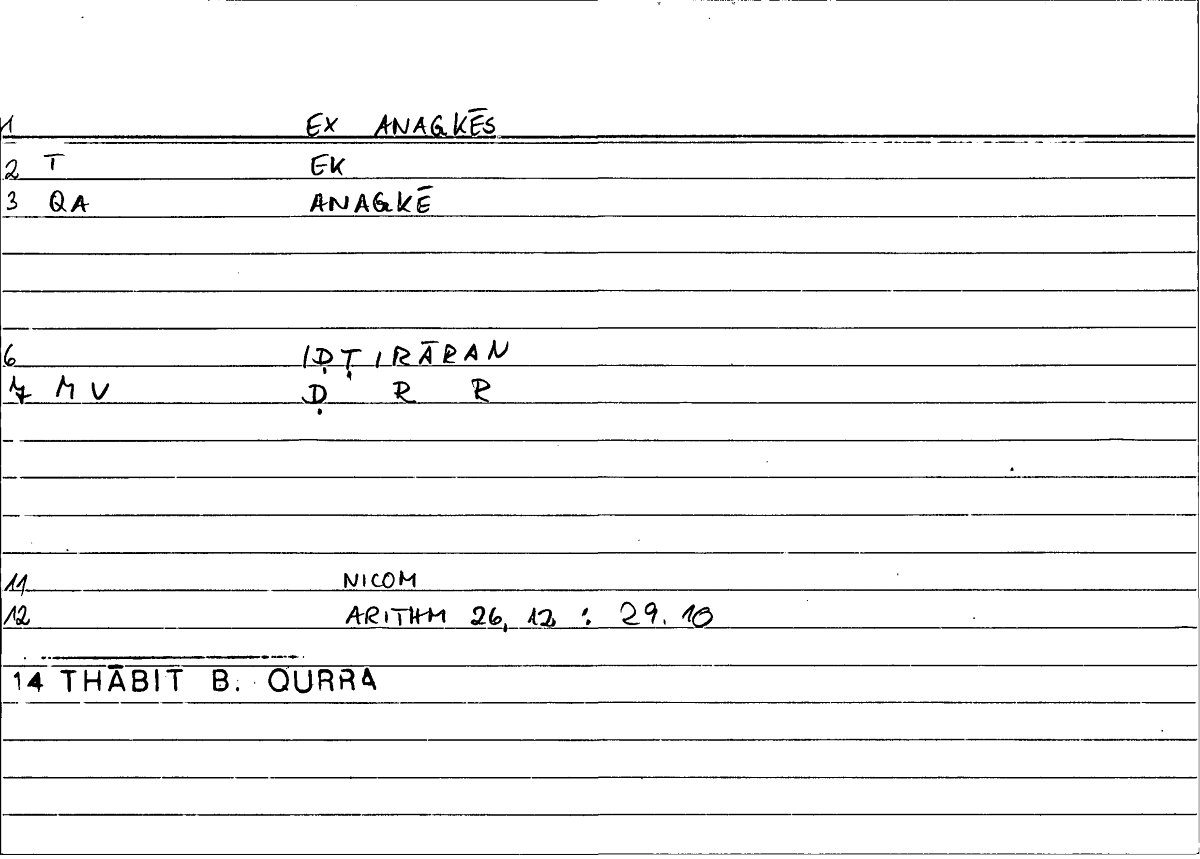 1 EX ANAGKĒS
2 T EK
3 QA ANAGKĒ
6 IḌṬIRĀRAN
7 MV Ḍ R R
11 NICOM
12 ARITHM 26, 12 : 29.10
14 THĀBIT B. QURRA